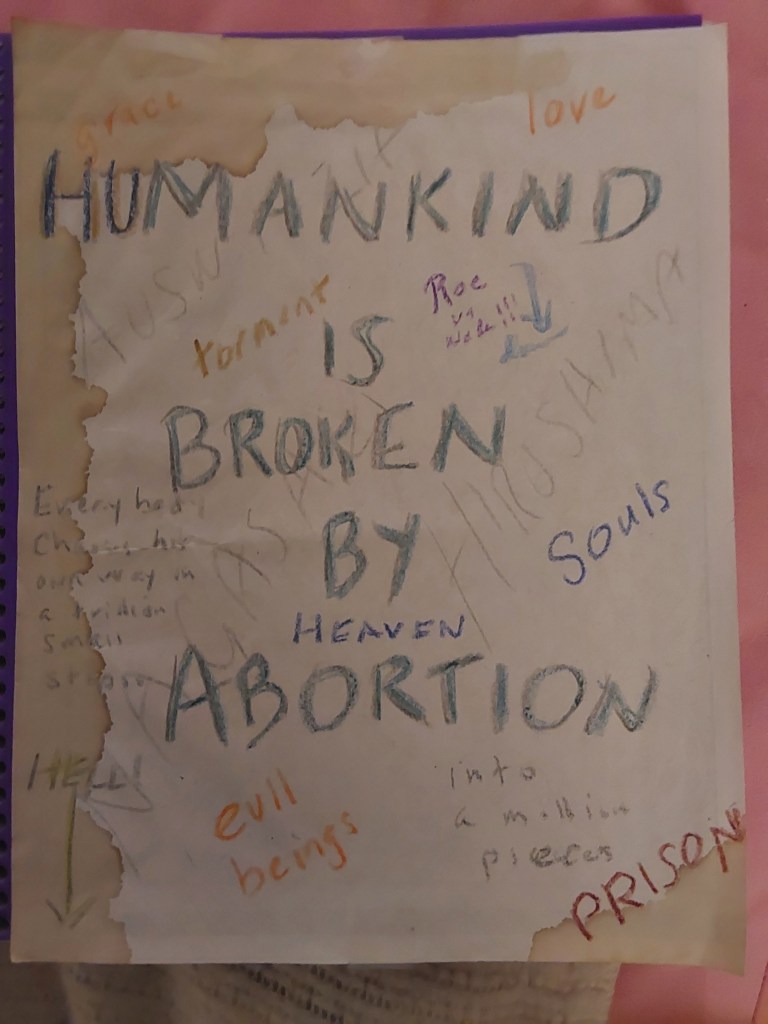 grace
love
HUMANKIND
torment
Roe
vs
IS
BROKEN
HIROSHIMA
Souls
BY
Everybody
his
own way in
a
small
HEAVEN
ABORTION
HELL!
into
a million
pieces
evil
beings
PRISON